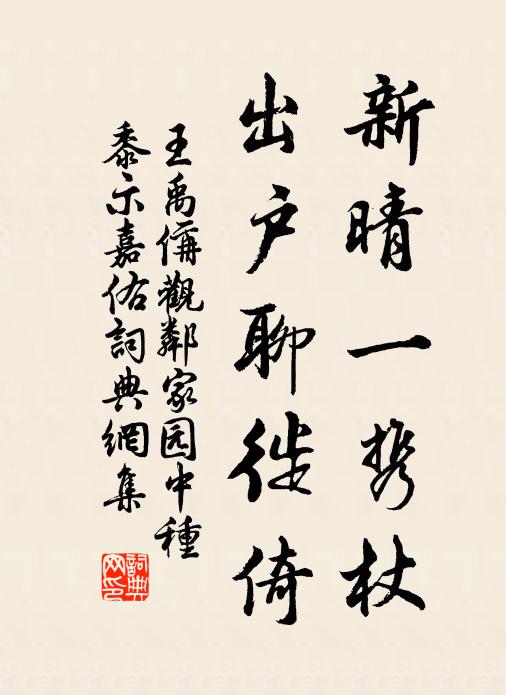 新晴一携杖
出户聊徙倚
王禹偁觀鄰家园中種
黍示嘉佑詞典網集
詞典網印